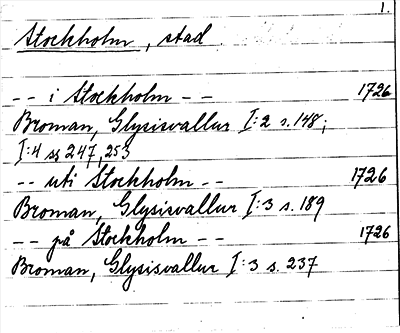 1.
Stockholm, stad
-- i Stockholm -- 1726
Broman, Glysisvallur I:2 s. 148;
I:4 ss 247, 253
-- uti Stockholm -- 1726
Broman, Glysisvallur I:3 s. 189
-- på Stockholm -- 1726
Broman, Glysisvallur I:3 s. 237